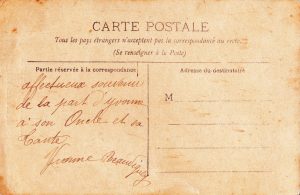 CARTE POSTALE
Tous les pays étrangers n'acceptent pas la correspondance au recto.
(Se renseigner à la Poste)
Partie réservée à la correspondance
affectueux souvenir
de la part d'yvonne
à son Oncle et sa
tante
Yvonne
Adresse du destinataire
M